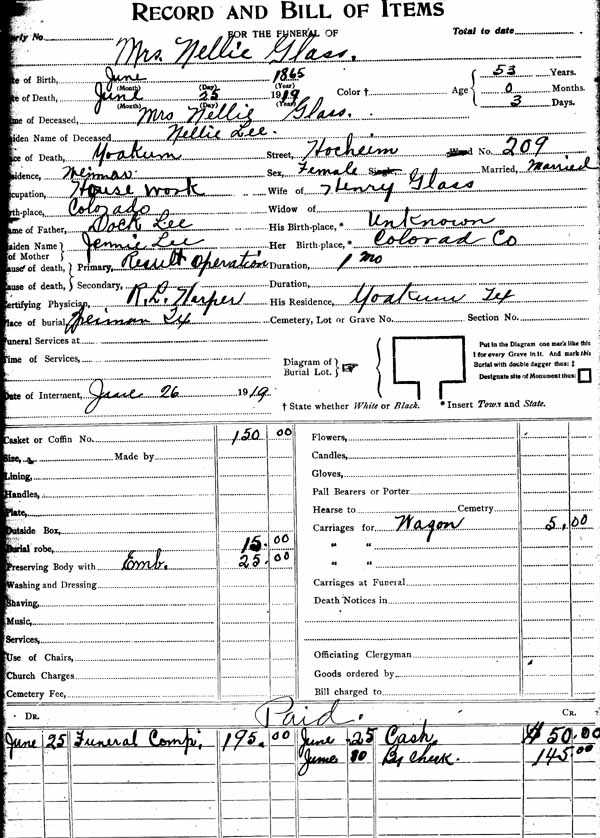 RECORD AND BILL OF ITEMS
rty No FOR THE FUNERAL OF Total to date
Mrs. Nellie Glass.
te of Birth, June 1865 53 Years.
(Month) (Day) (Year) Color † Age 0 Months.
te of Death, June 25 1919 3 Days.
(Month) (Day) (Year)
me of Deceased, Mrs Nellie Glass.
aiden Name of Deceased Nellie Lee.
ace of Death, Yoakum Street, Hocheim No. 209
sidence, Weimar Sex, Female Single Married, Married
cupation, House work Wife of Henry Glass
rth-place, Colorado Widow of
ame of Father, Dock Lee His Birth-place,* Unknown
aiden Name of Mother Jennie Lee Her Birth-place,* Colorad Co
ause of death, Primary, Result Operation Duration, 1 mo
ause of death, Secondary, Duration,
ertifying Physician, R. L. Harper His Residence, Yoakum Tex
lace of burial, Weimar Tex Cemetery, Lot or Grave No. Section No.
uneral Services at
Time of Services,
Diagram of Burial Lot.
Put in the Diagram one mark like this
1 for every Grave in it. And mark this
Burial with double dagger thus: ‡
Designate site of Monument thus:
Date of Interment, June 26 1919
† State whether White or Black. * Insert Town and State.
Casket or Coffin No. 150 00 Flowers,
Size, Made by Candles,
Lining, Gloves,
Handles, Pall Bearers or Porter
Plate, Hearse to Cemetry
Outside Box, Carriages for Wagon 5,00
Burial robe, 15.00 " "
Preserving Body with Emb. 25.00 " "
Washing and Dressing Carriages at Funeral
Shaving, Death Notices in
Music,
Services,
Use of Chairs, Officiating Clergyman
Church Charges Goods ordered by
Cemetery Fee, Bill charged to
DR. Paid. CR.
June 25 Funeral Comp. 195.00 June 25 Cash $50.00
June By Check. 145.00